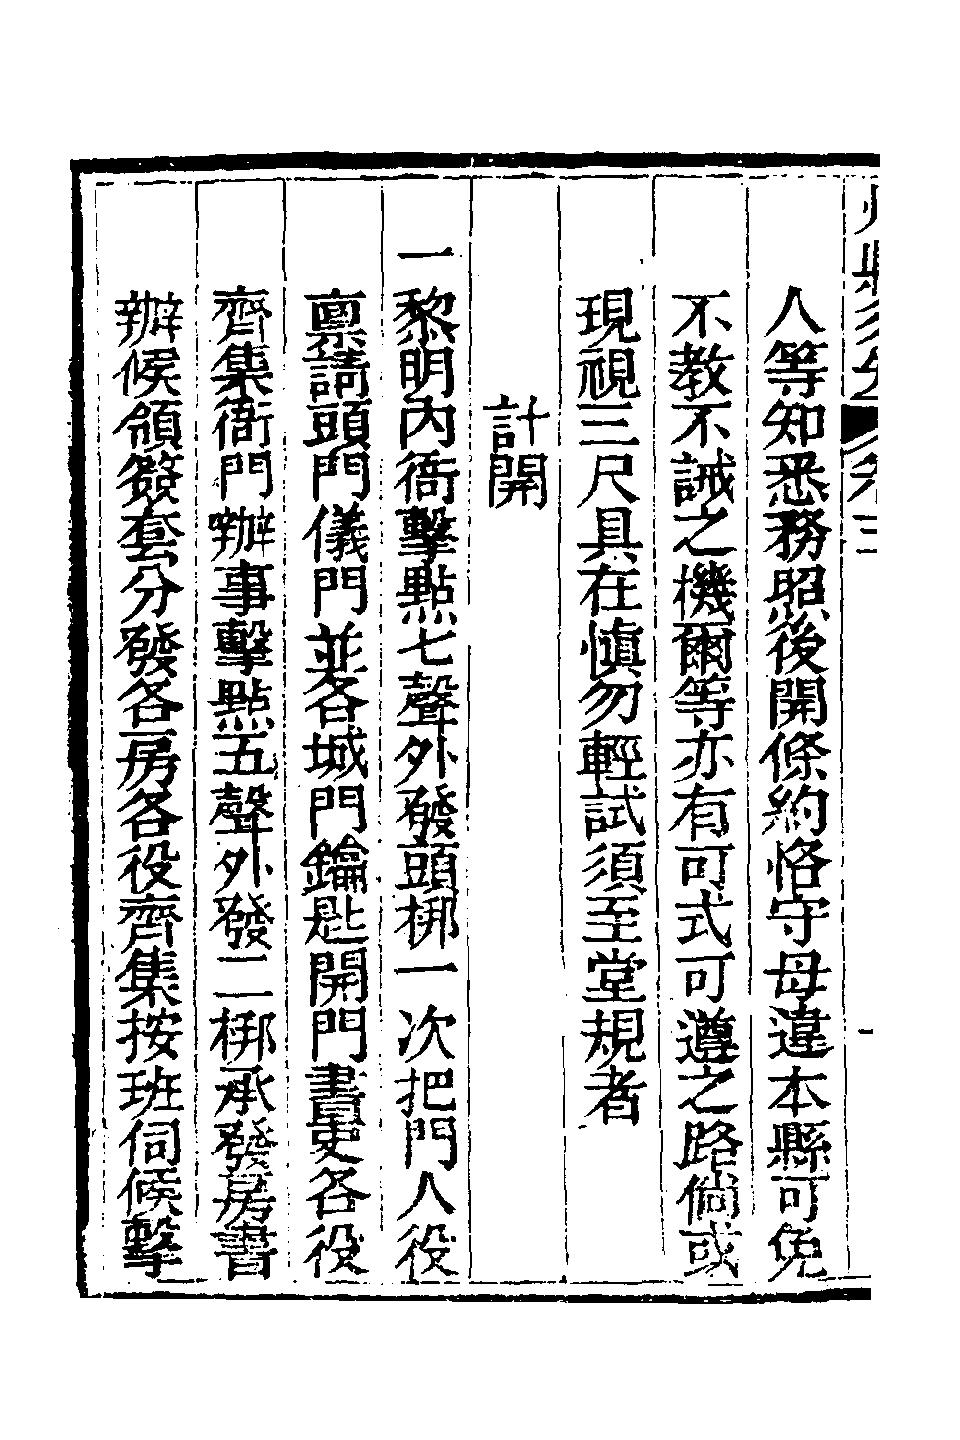 人等知悉務照後開條約恪守毋違本縣可免
不教不誡之機爾等亦有可式可遵之路倘或
現視三尺具在慎勿輕試須至堂規者
計開
一黎明內衙擊點七聲外發頭梆一次把門人役
稟請頭門儀門並各城門鑰匙開門書吏各役
齊集衙門辦事擊點五聲外發二梆承發房書
辦候領簽套分發各房各役齊集按班伺候擊